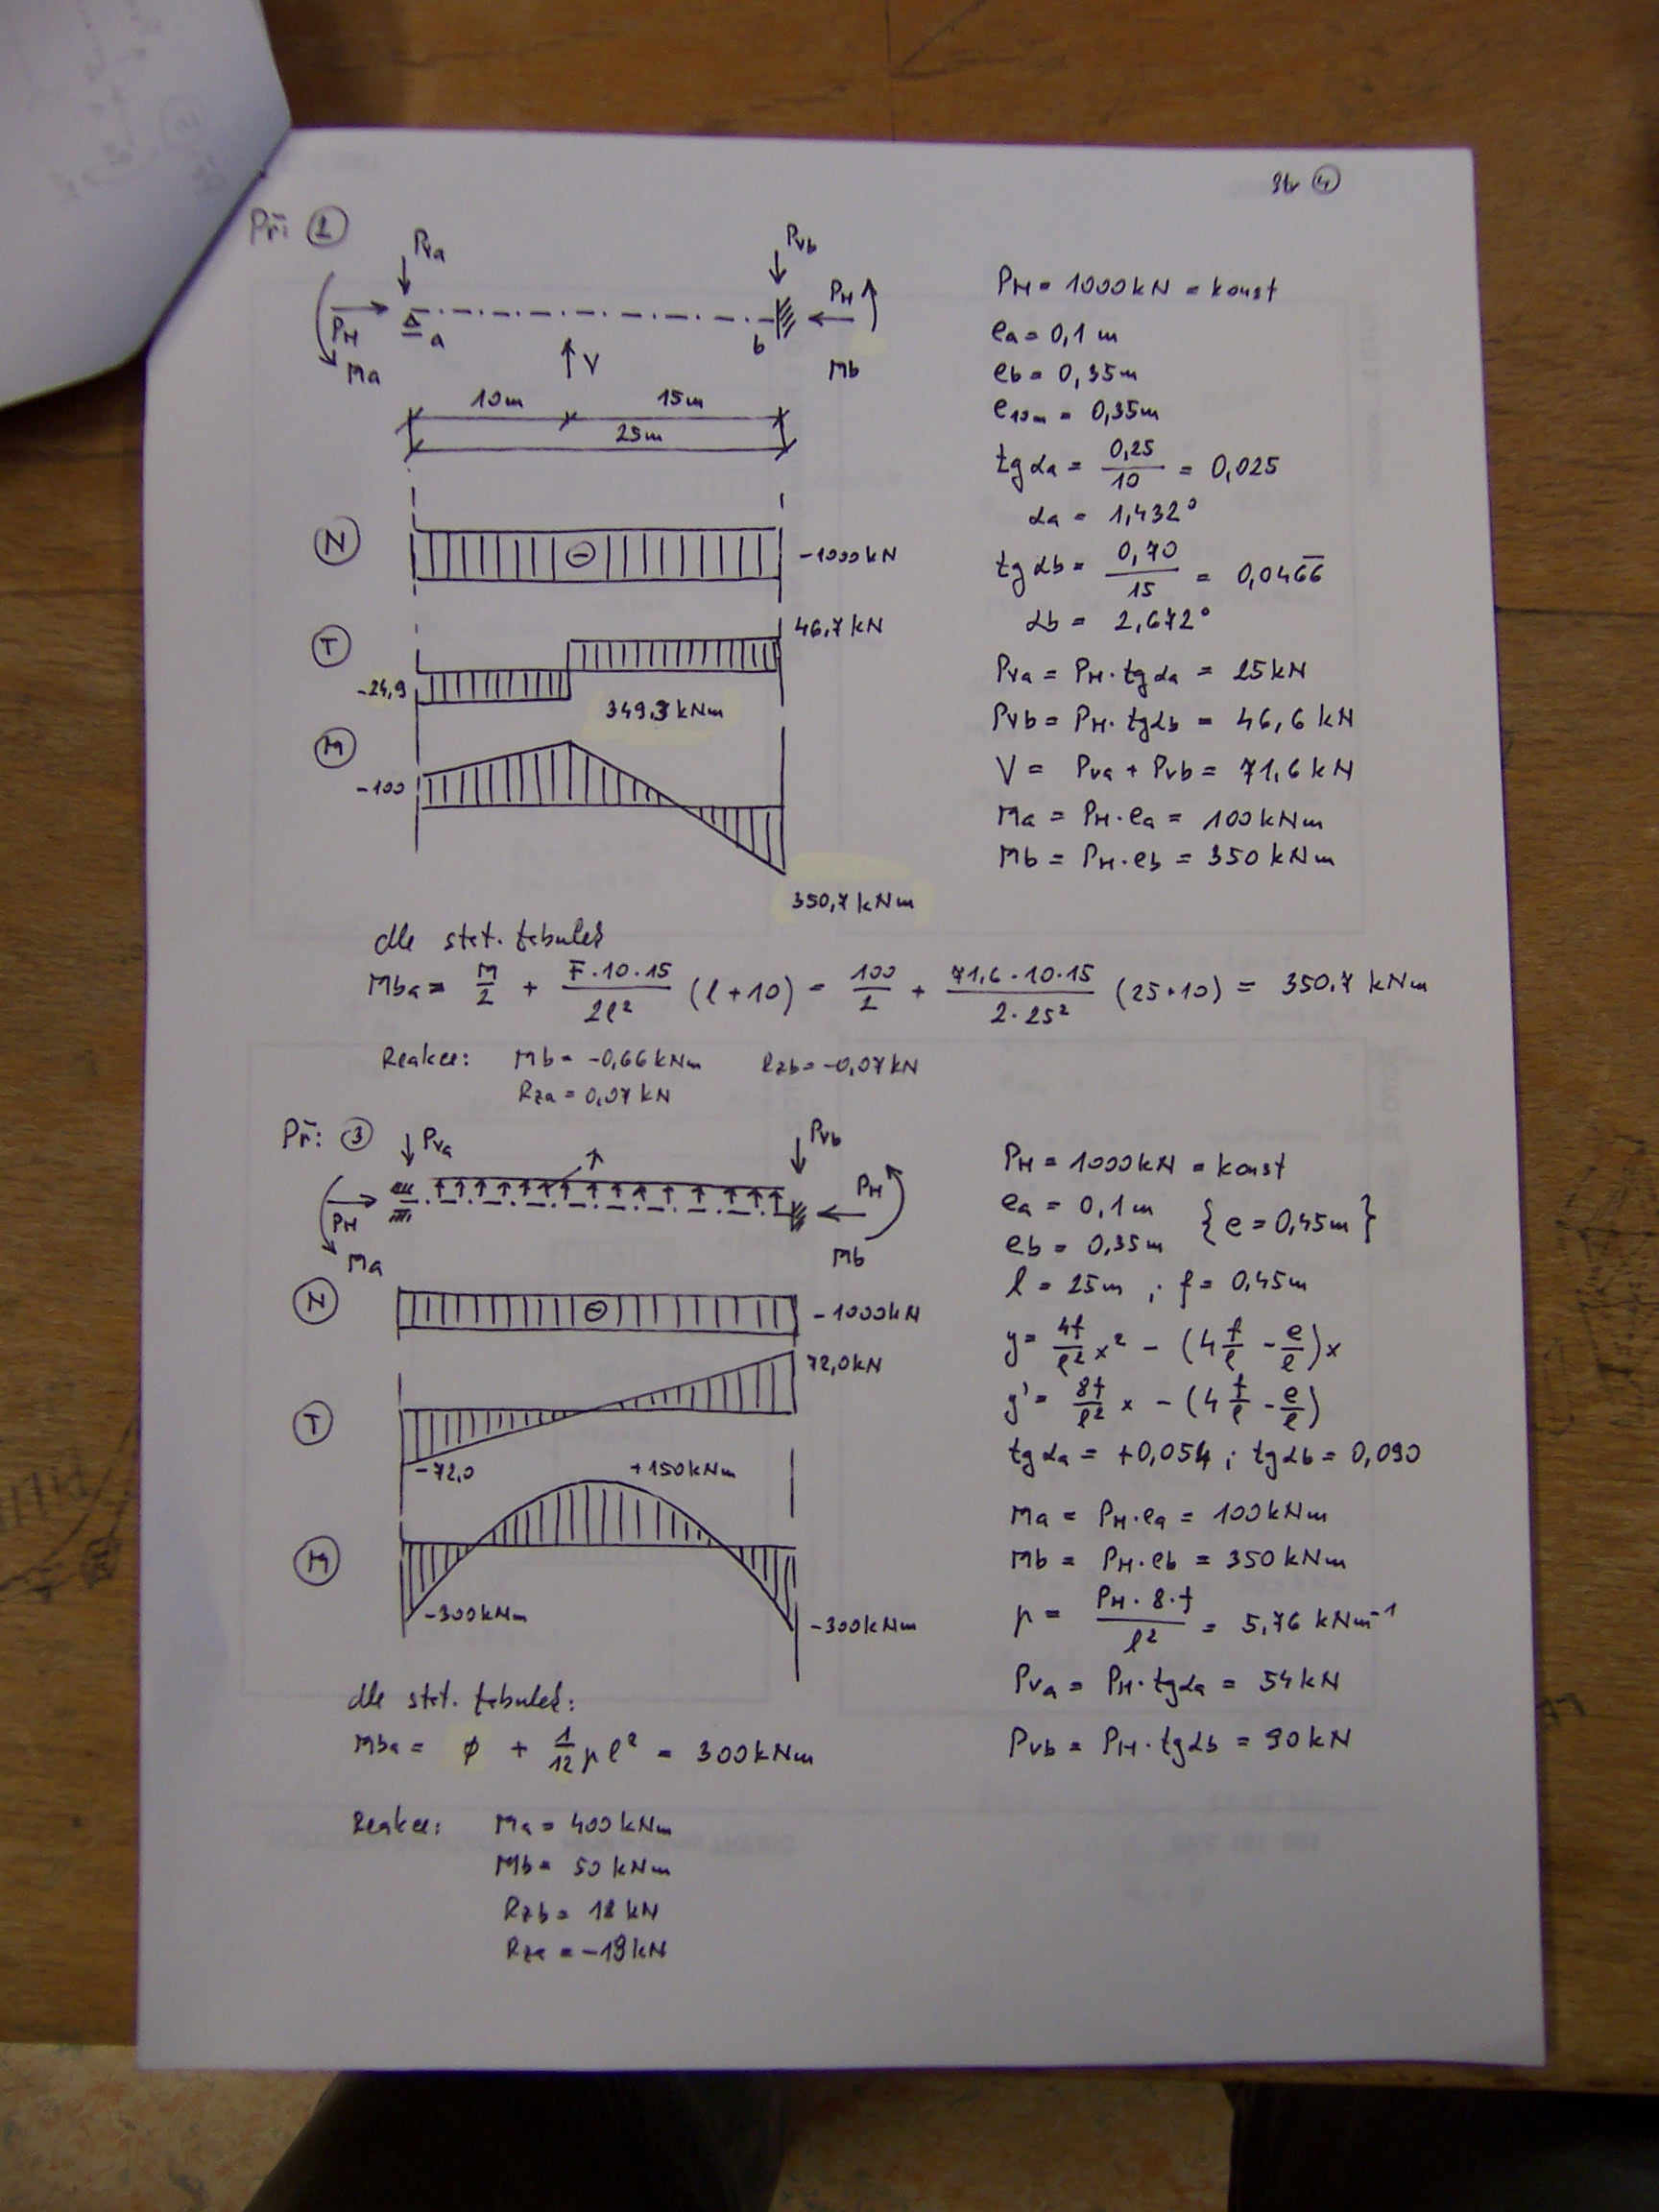 Str 4
Př: 2
Pva
Pvb
PH
Ma
a
V
b
PH
Mb
10m 15m
25m
N
-1000kN
T
46,7 kN
-24,9
349.3 kNm
M
-100
350,7 kNm
PH = 1000kN = konst
ea = 0,1 m
eb = 0,35m
e10m = 0,35m
tg αa = 0,25/10 = 0,025
αa = 1,432°
tg αb = 0,70/15 = 0,0466̅
αb = 2,672°
Pva = PH·tgαa = 25kN
Pvb = PH·tgαb = 46,6 kN
V = Pva + Pvb = 71,6 kN
Ma = PH·ea = 100kNm
Mb = PH·eb = 350 kNm
dle stat. tabulek
Mba = M/2 + F·10·15/2l² (l+10) = 100/2 + 71,6·10·15/2·25² (25+10) = 350.7 kNm
Reakce: Mb = -0,66kNm Rzb = -0,07kN
Rza = 0,07kN
Př: 3
Pva
Pvb
PH
Ma
PH
Mb
N
-1000kN
72,0kN
T
-72,0
+150kNm
M
-300kNm
-300kNm
PH = 1000kN = konst
ea = 0,1m {e = 0,45m}
eb = 0,35m
l = 25m ; f = 0,45m
y = 4f/l² x² - (4 f/l - e/l)x
y' = 8f/l² x - (4 f/l - e/l)
tgαa = +0,054 ; tgαb = 0,090
Ma = PH·ea = 100kNm
Mb = PH·eb = 350kNm
p = PH·8·f/l² = 5,76 kNm⁻¹
Pva = PH·tgαa = 54kN
Pvb = PH·tgαb = 90kN
dle stat. tabulek:
Mba = ϕ + 1/12 p l² = 300kNm
Reakce: Ma = 400kNm
Mb = 50kNm
Rzb = 18kN
Rza = -18kN